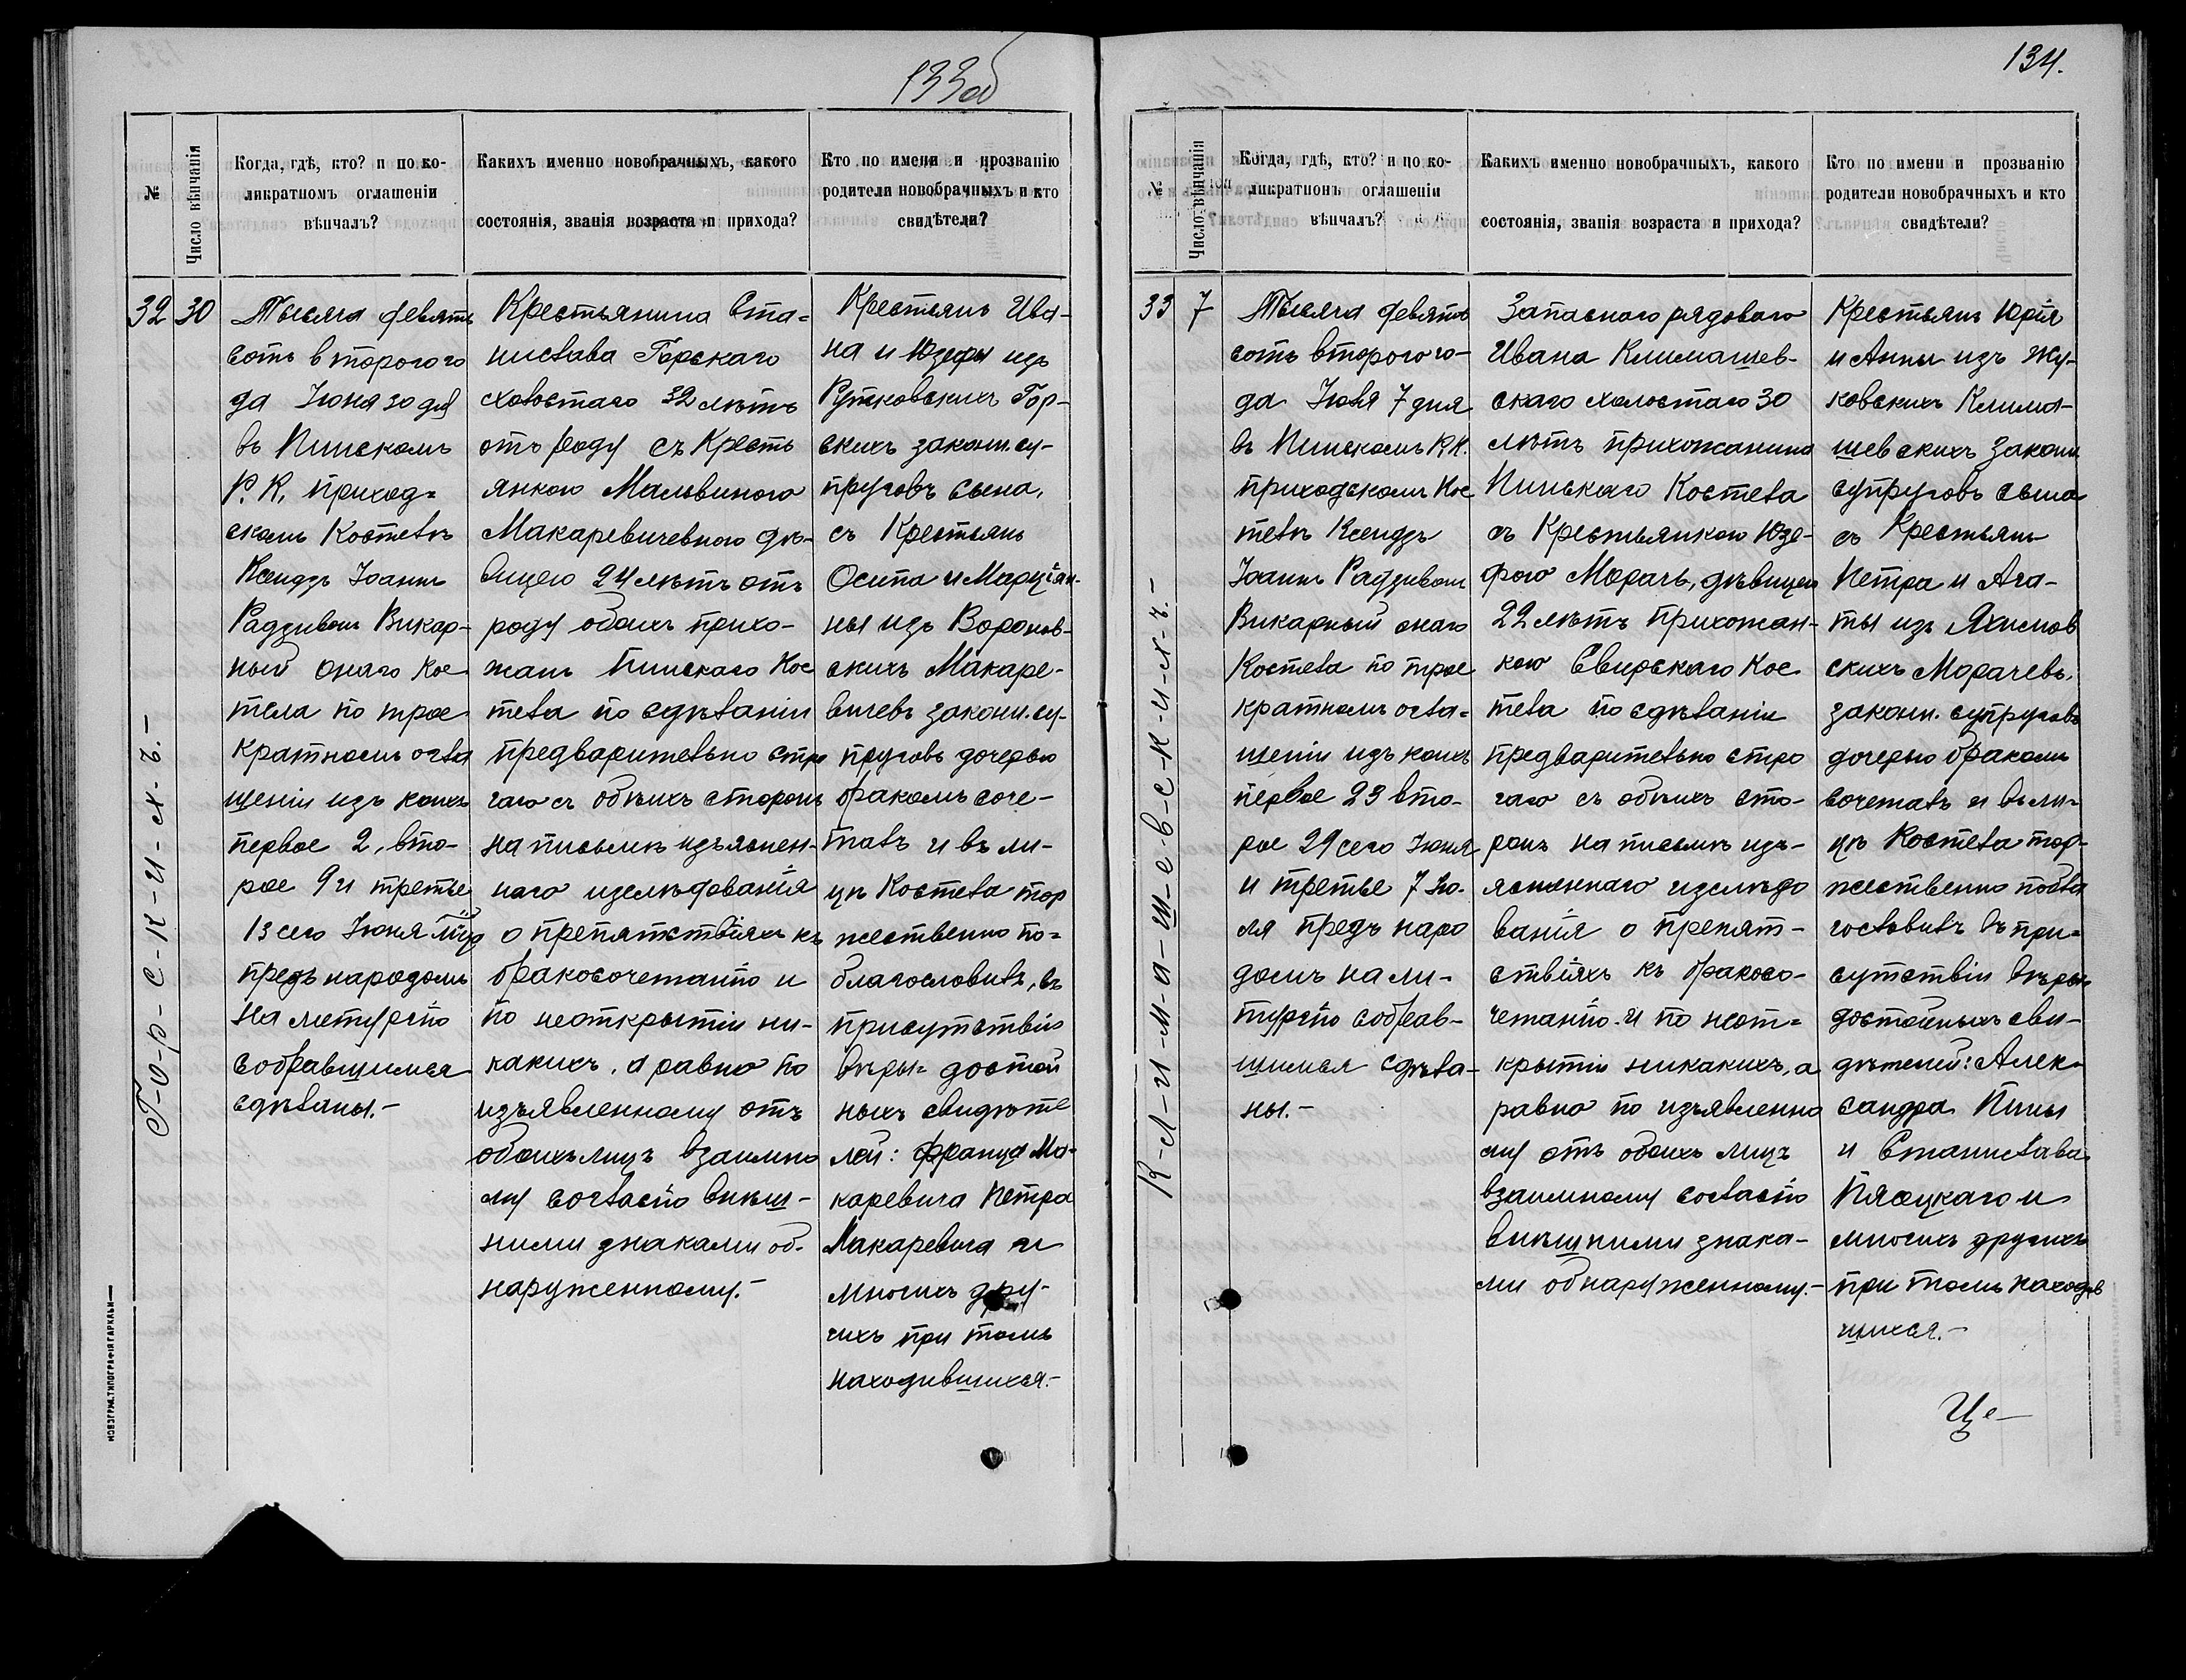 133об
№
Число вѣнчанія
Когда, гдѣ, кто? и по ко-
ликратномъ оглашеніи
вѣнчалъ?
Какихъ именно новобрачныхъ, какого
состоянія, званія возраста и прихода?
Кто по имени и прозванію
родители новобрачныхъ и кто
свидѣтели?
32
30
Г-о-р-с-к-и-х-ъ.-
Тысяча девять
сотъ второго го
да Іюня 30 дня
въ Пинскомъ
Р. К. приход=
скомъ Костелѣ
Ксендзъ Іоаннъ
Радзивилъ Викар-
ный онаго Кос
тела по трое
кратномъ огла
шеніи изъ коихъ
первое 2, вто-
рое 9 и третье
13 сего Іюня
предъ народомъ
на литургію
собравшимся
сдѣланы.-
Крестьянина Ста=
нислава Горскаго
холостаго 32 лѣтъ
отъ роду съ Кресть
янкою Мальвиною
Макаревичевною дѣ-
вицею 24 лѣтъ отъ
роду обоихъ прихо-
жанъ Пинскаго Кос
тела по сдѣланіи
предварительно стро
гаго съ обѣихъ сторонъ
на письмѣ изъяснен-
наго изслѣдованія
о препятствіяхъ къ
бракосочетанію и
по неоткрытіи ни-
какихъ, а равно по
изъявленному отъ
обоихъ лицъ взаимно
му согласію внѣш-
ними знаками об-
наруженному.-
Крестьянъ Ива-
на и Юзефы изъ
Рутковскихъ Гор-
скихъ законн. су-
пруговъ сына,
съ Крестьянъ
Осипа и Марціан-
ны изъ Воронов-
скихъ Макаре-
вичевъ законн. су-
пруговъ дочерью
бракомъ соче-
талъ и въ ли-
цѣ Костела тор
жественно по=
благословилъ, въ
присутствіи
вѣры= достой
ныхъ свидѣте
лей: Франца Ма-
каревича Петра
Макаревича и
многихъ дру-
гихъ при томъ
находившихся.-
НОВОГРАД. ТИПОГРАФІЯ ГАРКАВИ
134.
№
Число вѣнчанія
Когда, гдѣ, кто? и по ко-
ликратномъ оглашеніи
вѣнчалъ?
Какихъ именно новобрачныхъ, какого
состоянія, званія возраста и прихода?
Кто по имени и прозванію
родители новобрачныхъ и кто
свидѣтели?
33
7
К-л-и-м-а-ш-е-в-с-к-и-х-ъ.-
Тысяча девять
сотъ второго го-
да Іюля 7 дня
въ Пинскомъ Р.К.
приходскомъ Кос
телѣ Ксендзъ
Іоаннъ Радзивилъ
Викарный онаго
Костела по трое
кратномъ огла=
шеніи изъ коихъ
первое 23 вто-
рое 29 сего Іюня
и третье 7 Ію-
ля предъ наро
домъ на ли-
тургію собрав-
шимся сдѣла-
ны.-
Запаснаго рядоваго
Ивана Климашев-
скаго холостаго 30
лѣтъ прихожанина
Пинскаго Костела
съ Крестьянкою Юзе-
фою Морачъ, дѣвицею
22 лѣтъ прихожан-
кою Свирскаго Кос
тела по сдѣланіи
предварительно стро
гаго съ обѣихъ сто-
ронъ на письмѣ изъ-
ясненнаго изслѣдо
ванія о препят-
ствіяхъ къ бракосо-
четанію. и по неот=
крытіи никакихъ, а
равно по изъявленно
му отъ обоихъ лицъ
взаимному согласію
внѣшними знака-
ми обнаруженному.-
Крестьянъ Юрія
и Анны изъ Жу-
ковскихъ Клима-
шевскихъ законн.
супруговъ сына
съ Крестьянъ
Петра и Ага-
ты изъ Яхимов
скихъ Морачевъ.
законн. супруговъ
дочерью бракомъ
сочеталъ и въ ли=
цѣ Костела тор-
жественно побла
гословилъ въ при=
сутствіи вѣры
достойныхъ сви-
дѣтелей: Алек-
сандра Пины
и Станислава
Пясецкаго и
многихъ другихъ
при томъ находив
шихся.-
Це-